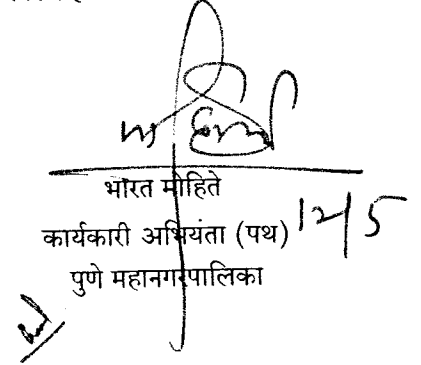 भारत मोहिते
कार्यकारी अभियंता (पथ)
12/5
पुणे महानगरपालिका